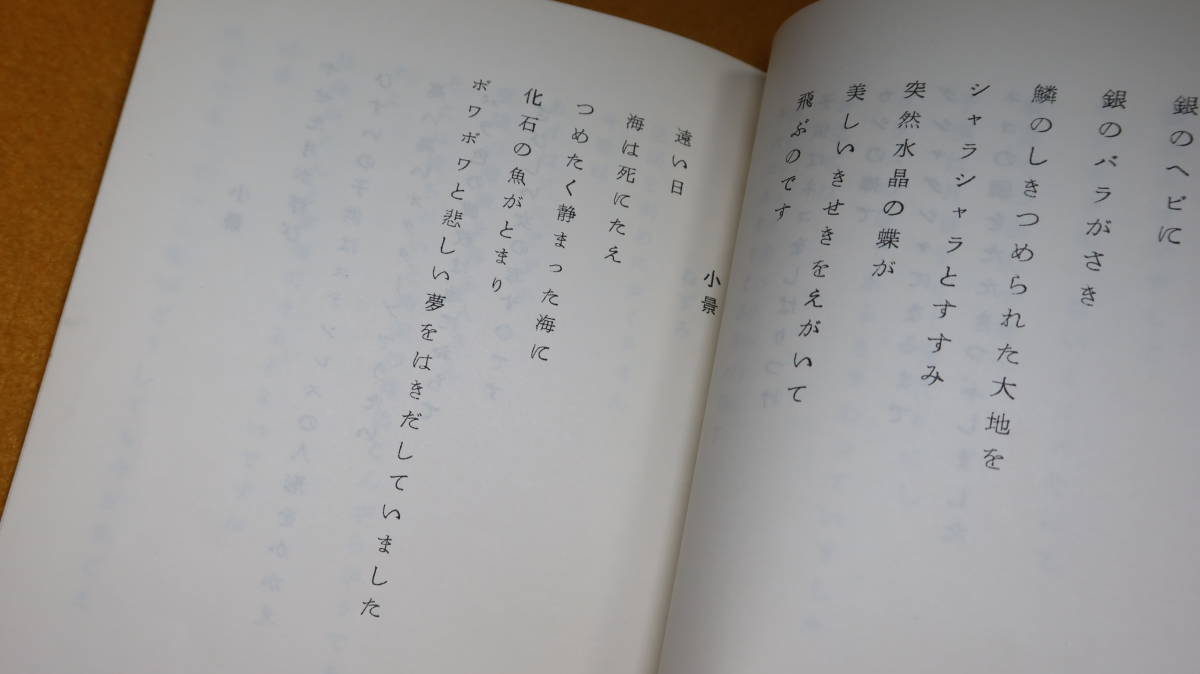 銀のヘビに
銀のバラがさき
鱗のしきつめられた大地を
シャラシャラとすすみ
突然水晶の蝶が
美しいきせきをえがいて
飛ぶのです
小景
遠い日
海は死にたえ
つめたく静まった海に
化石の魚がとまり
ポワポワと悲しい夢をはきだしていました